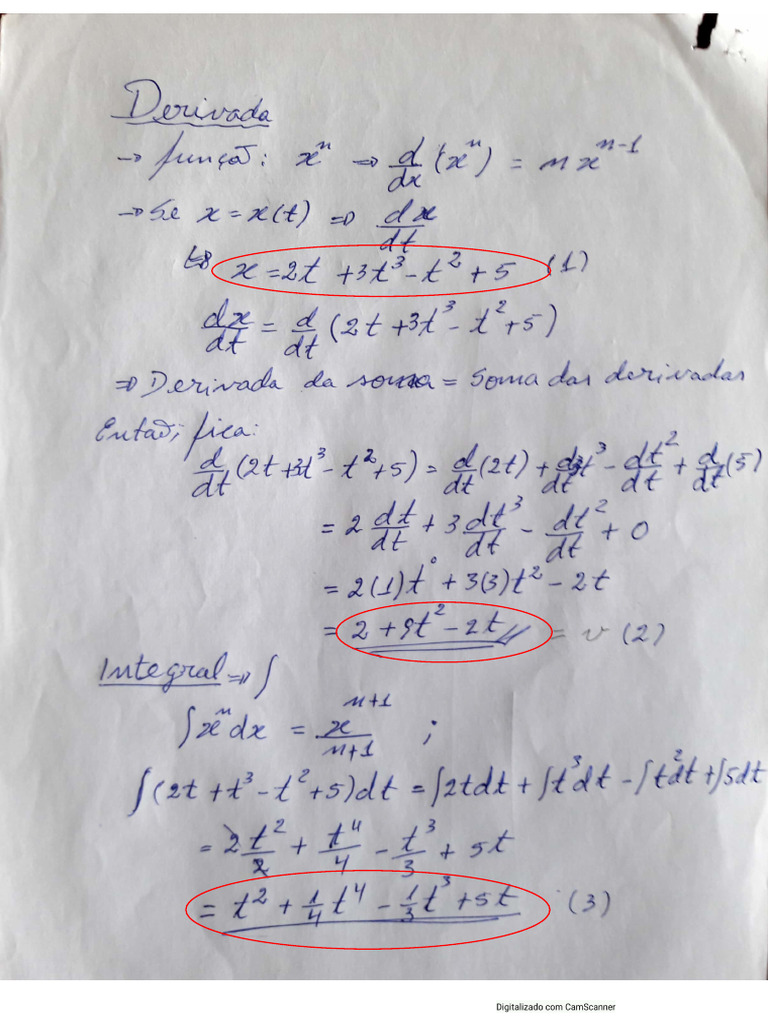 Derivada
→ função: xⁿ ⇒ d/dx (xⁿ) = n xⁿ⁻¹
→ Se x = x(t) ⇒ dx/dt
x = 2t + 3t³ - t² + 5 (1)
dx/dt = d/dt (2t + 3t³ - t² + 5)
⇒ Derivada da soma = Soma das derivadas
Então, fica:
d/dt (2t + 3t³ - t² + 5) = d/dt (2t) + d3t³/dt - dt²/dt + d/dt (5)
= 2 dt/dt + 3 dt³/dt - dt²/dt + 0
= 2(1)t⁰ + 3(3)t² - 2t
= 2 + 9t² - 2t = v (2)
Integral ⇒ ∫
∫xⁿdx = xⁿ⁺¹/n+1 ;
∫(2t + t³ - t² + 5)dt = ∫2tdt + ∫t³dt - ∫t²dt + ∫5dt
= 2t²/2 + t⁴/4 - t³/3 + 5t
= t² + 1/4 t⁴ - 1/3 t³ + 5t (3)
Digitalizado com CamScanner